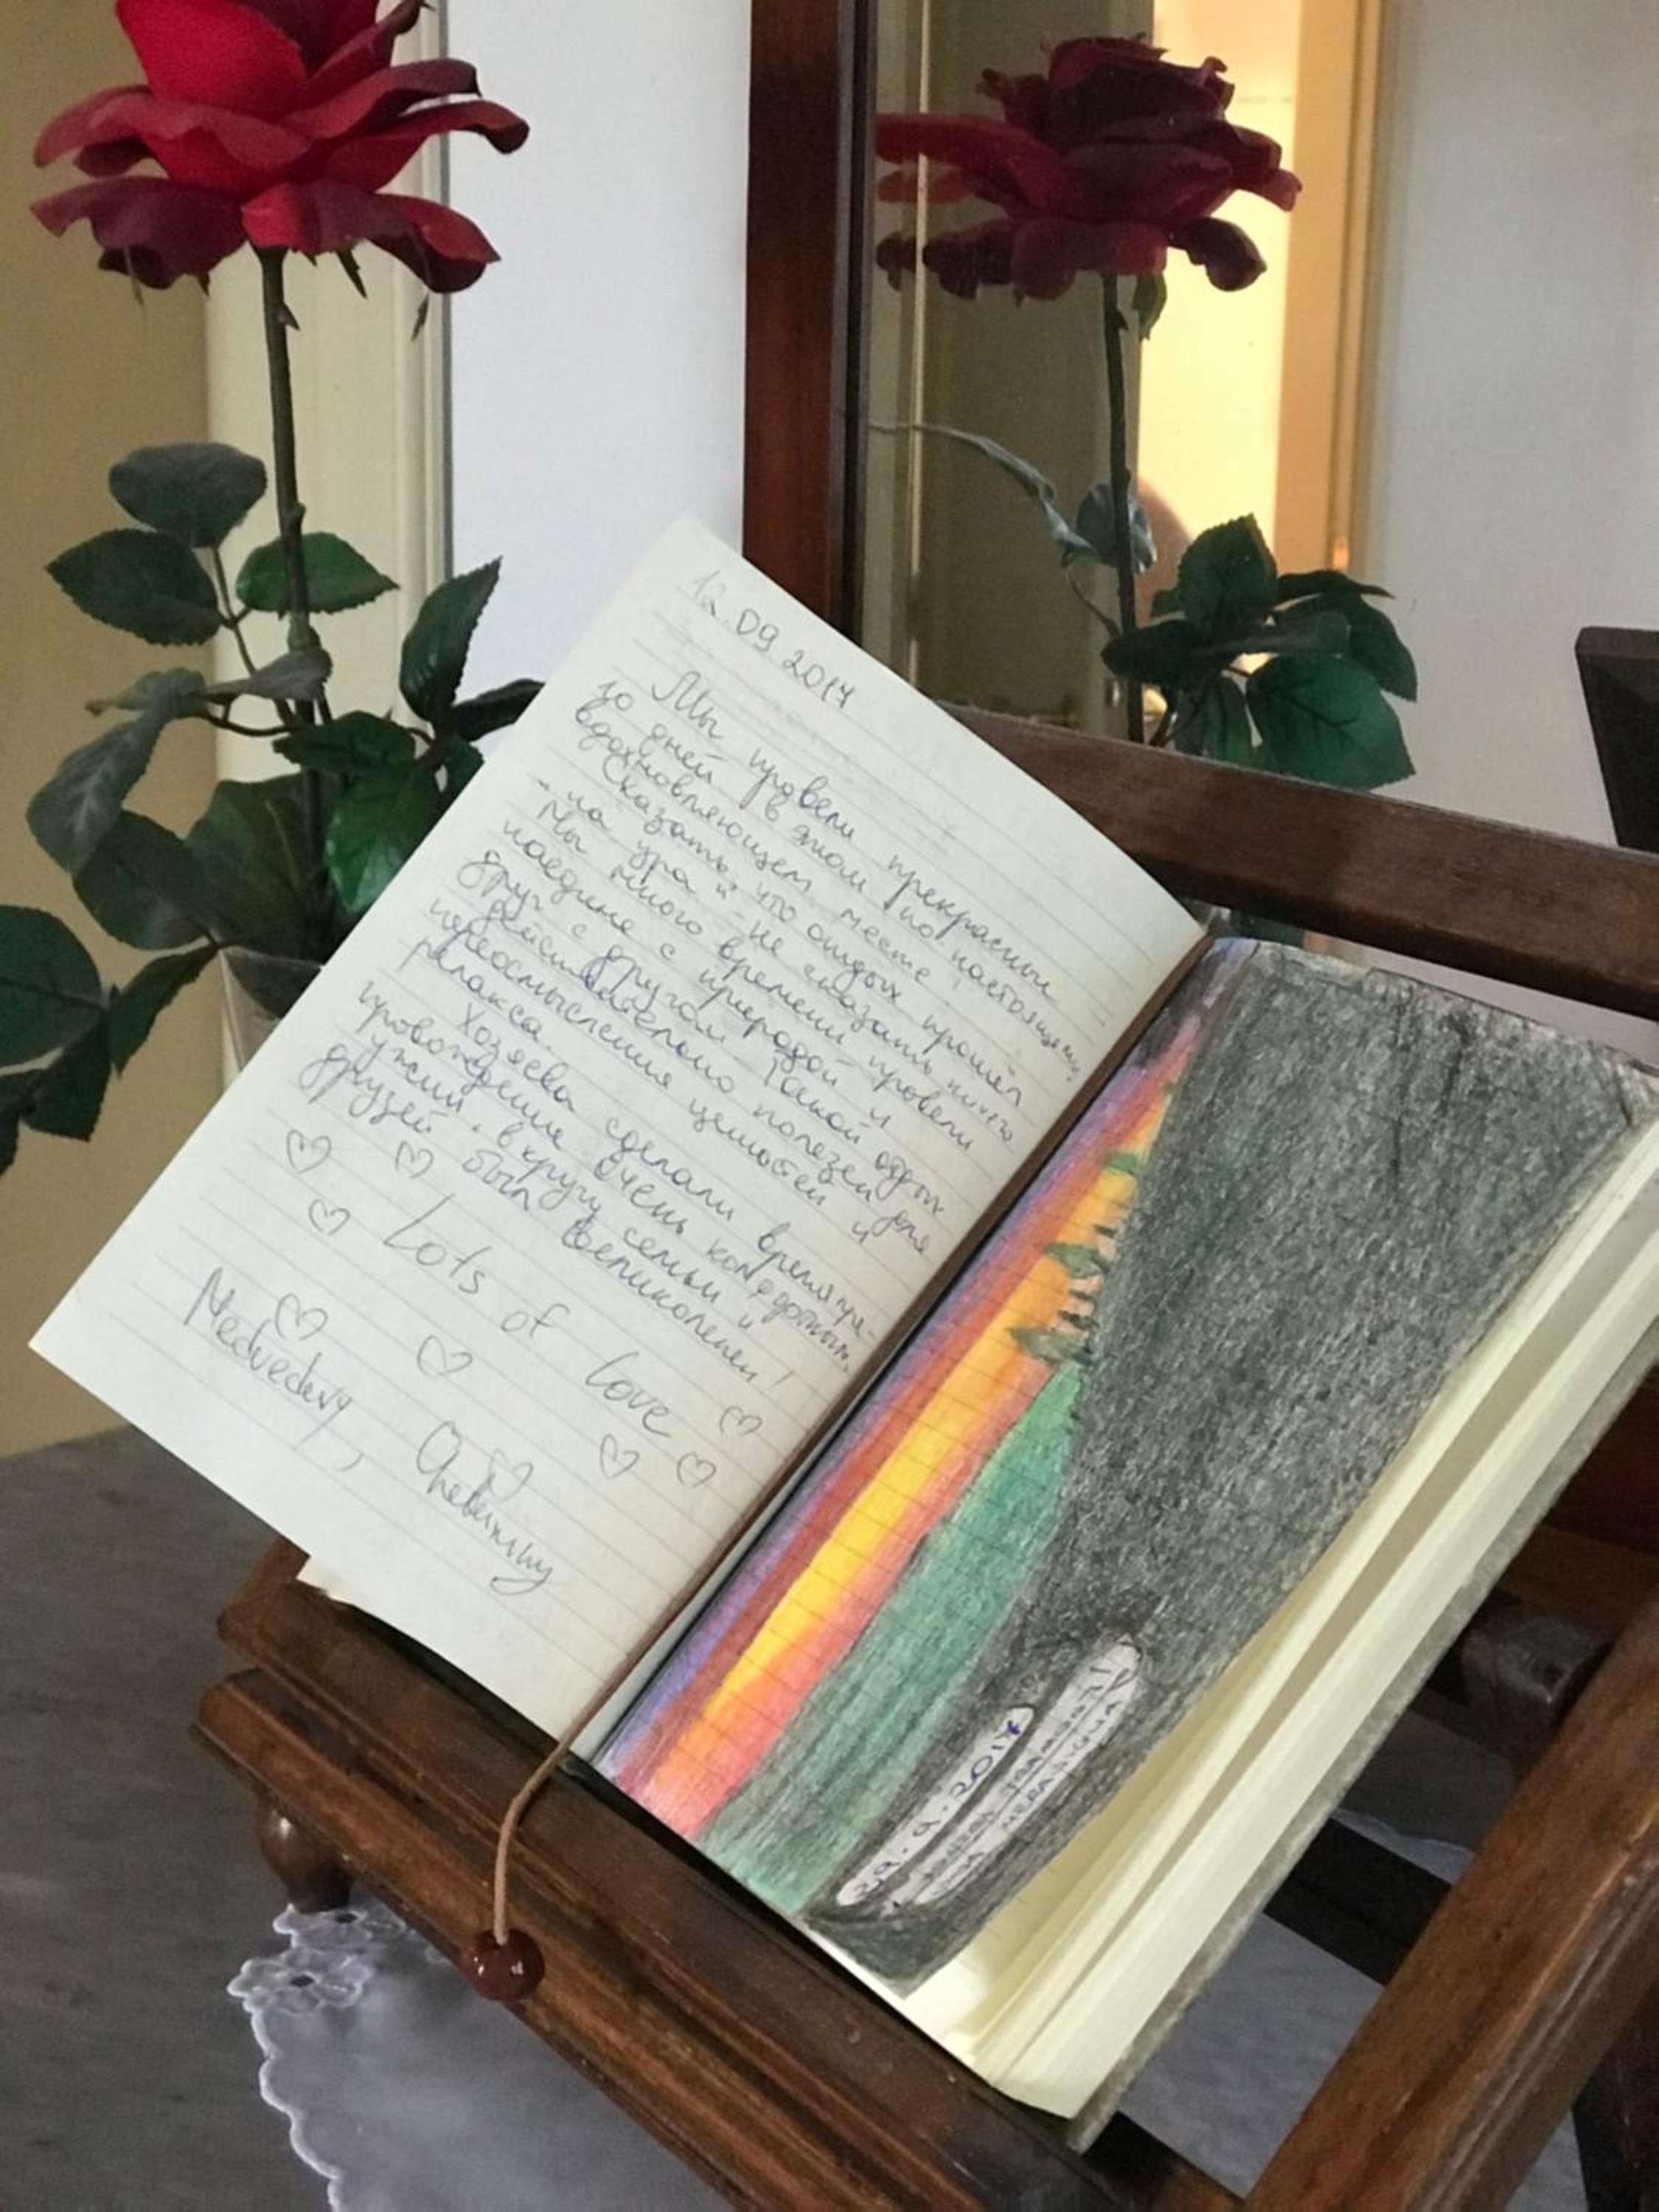 12.09 2017
Мы провели прекрасных
10 дней в этом по настоящему
вдохновляющем месте
Сказать, что отдых прошёл
"на ура" - не сказать ничего
Мы много времени провели
наедине с природой и
друг с другом. Такой отдых
действительно полезен для
переосмысления ценностей и
релакса.
Хозяева сделали времяпре-
провождение очень комфортным,
ужин в кругу семьи и
друзей был великолепен!
Lots of love
Medvedevy,
29.9.2017